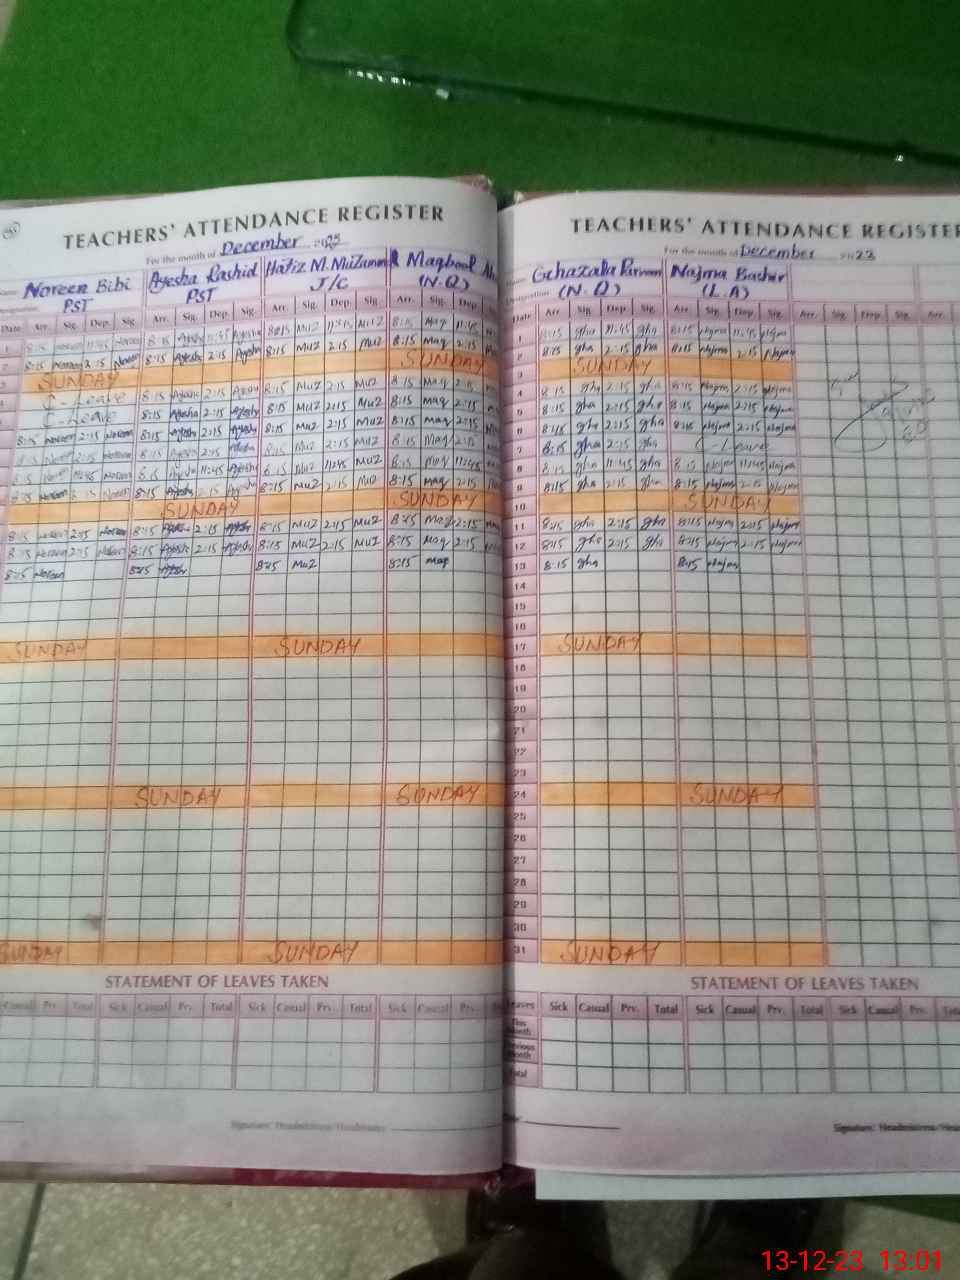 TEACHERS' ATTENDANCE REGISTER
For the month of December 2023
Noreen Bibi Ayesha Rashid Hafiz M. Muzamm Maqbool
PST PST J/C (N.Q)
Date Arr. Sig. Dep. Sig. Arr. Sig. Dep. Sig. Arr. Sig. Dep. Sig. Arr. Sig. Dep.
1 8:15 Noreen 11:45 Noreen 8:15 Ayesha 11:45 Ayesha 8:15 MuZ 11:45 MuZ 8:15 Maq 11:45
2 8:15 Noreen 2:15 Noreen 8:15 Ayesha 2:15 Ayesha 8:15 MuZ 2:15 MuZ 8:15 Maq 2:15
3 SUNDAY SUNDAY
C-Leave 8:15 Ayesha 2:15 Ayesha 8:15 MuZ 2:15 MuZ 8:15 Maq 2:15
C-Leave 8:15 Ayesha 2:15 Ayesha 8:15 MuZ 2:15 MuZ 8:15 Maq 2:15
8:15 Noreen 2:15 Noreen 8:15 Ayesha 2:15 Ayesha 8:15 MuZ 2:15 MuZ 8:15 Maq 2:15
8:15 Noreen 2:15 Noreen 8:15 Ayesha 2:15 Ayesha 8:15 MuZ 2:15 MuZ 8:15 Maq 2:15
8:15 Noreen 11:45 Noreen 8:15 Ayesha 11:45 Ayesha 8:15 MuZ 11:45 MuZ 8:15 Maq 11:45
8:15 Noreen Noreen 8:15 Ayesha 2:15 Ayesha 8:15 MuZ 2:15 MuZ 8:15 Maq 2:15
SUNDAY SUNDAY
8:15 Noreen 2:15 Noreen 8:15 Ayesha 2:15 Ayesha 8:15 MuZ 2:15 MuZ 8:15 Maq 2:15
8:15 Noreen 2:15 Noreen 8:15 Ayesha 2:15 Ayesha 8:15 MuZ 2:15 MuZ 8:15 Maq 2:15
8:15 Noreen 8:15 Ayesha 8:15 MuZ 8:15 Maq
SUNDAY SUNDAY
SUNDAY SUNDAY
SUNDAY SUNDAY
STATEMENT OF LEAVES TAKEN
Casual Prv. Total Sick Casual Prv. Total Sick Casual Prv. Total Sick Casual Prv.
Signature: Headmistress/Headmaster
TEACHERS' ATTENDANCE REGISTER
For the month of December 2023
Name: Ghazalla Parveen Najma Bashir
Designation: (N.Q) (L.A)
Date Arr. Sig. Dep. Sig. Arr. Sig. Dep. Sig. Arr. Sig. Dep. Sig. Arr.
1 8:15 gha 11:45 gha 8:15 Najma 11:45 Najma
2 8:15 gha 2:15 gha 8:15 Najma 2:15 Najma
3 SUNDAY
4 8:15 gha 2:15 gha 8:15 Najma 2:15 Najma
5 8:15 gha 2:15 gha 8:15 Najma 2:15 Najma
6 8:15 gha 2:15 gha 8:15 Najma 2:15 Najma
7 8:15 gha 2:15 gha C-Leave
8 8:15 gha 11:45 gha 8:15 Najma 11:45 Najma
9 8:15 gha 2:15 gha 8:15 Najma 2:15 Najma
10 SUNDAY
11 8:15 gha 2:15 gha 8:15 Najma 2:15 Najma
12 8:15 gha 2:15 gha 8:15 Najma 2:15 Najma
13 8:15 gha 8:15 Najma
14
15
16
17 SUNDAY
18
19
20
21
22
23
24 SUNDAY
25
26
27
28
29
30
31 SUNDAY
STATEMENT OF LEAVES TAKEN
Leaves Sick Casual Prv. Total Sick Casual Prv. Total Sick Casual Prv.
This Month
Previous Month
Total
Signature: Headmistress/
13-12-23 13:01